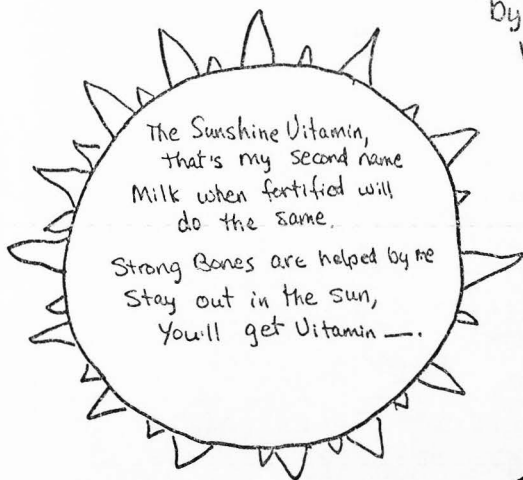 by
The Sunshine Vitamin,
that's my second name
Milk when fortified will
do the same.
Strong Bones are helped by me
Stay out in the sun,
You'll get Vitamin __.